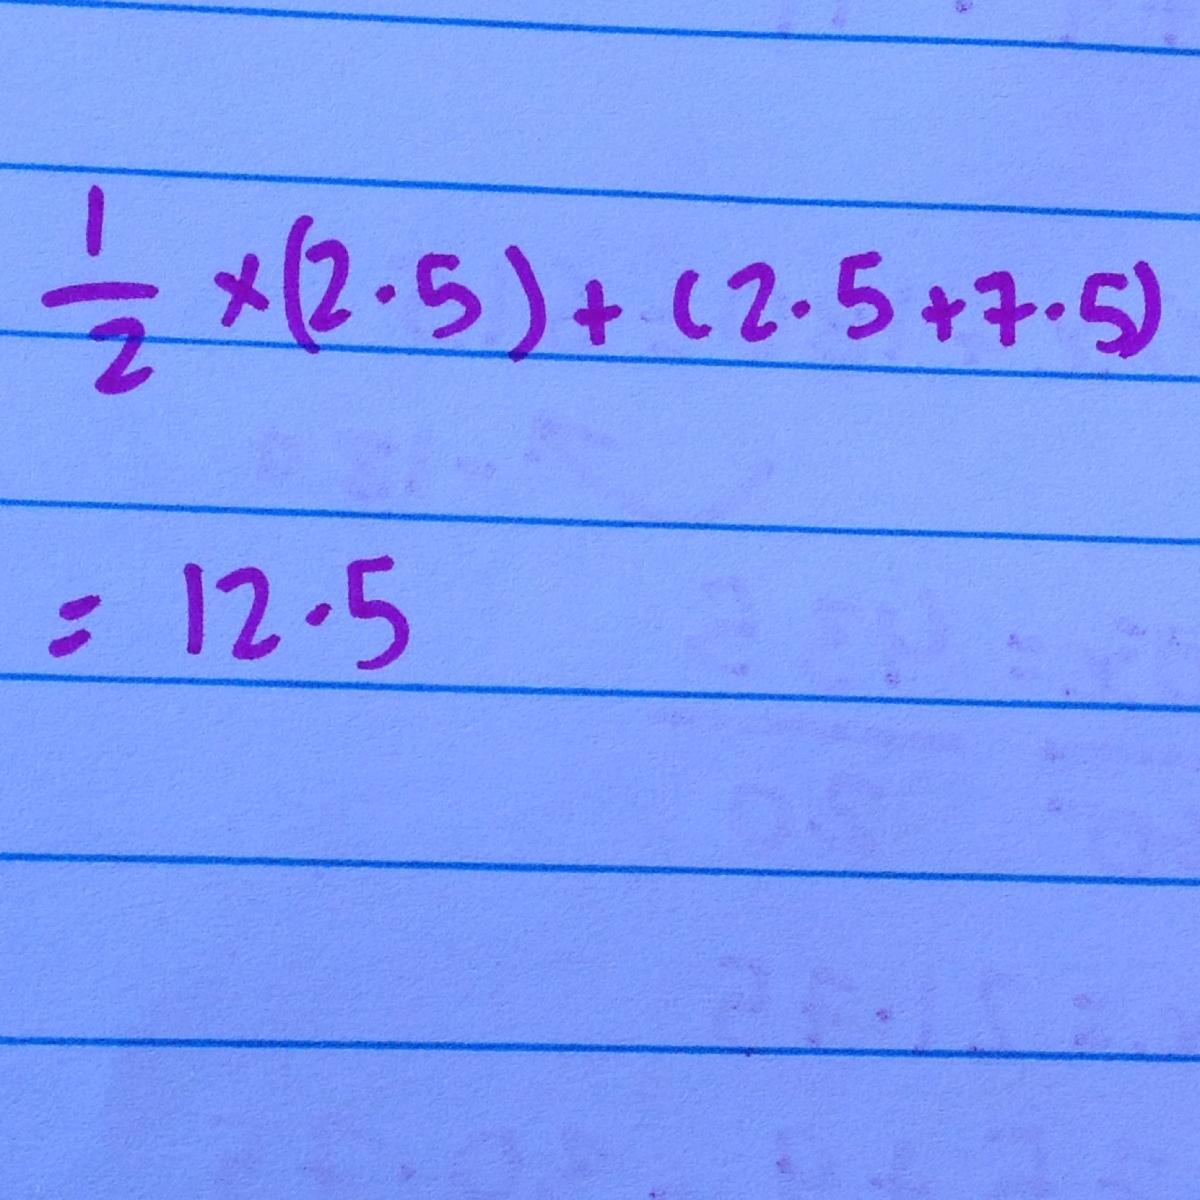 1/2 ×(2·5)+(2·5+7·5)
= 12·5